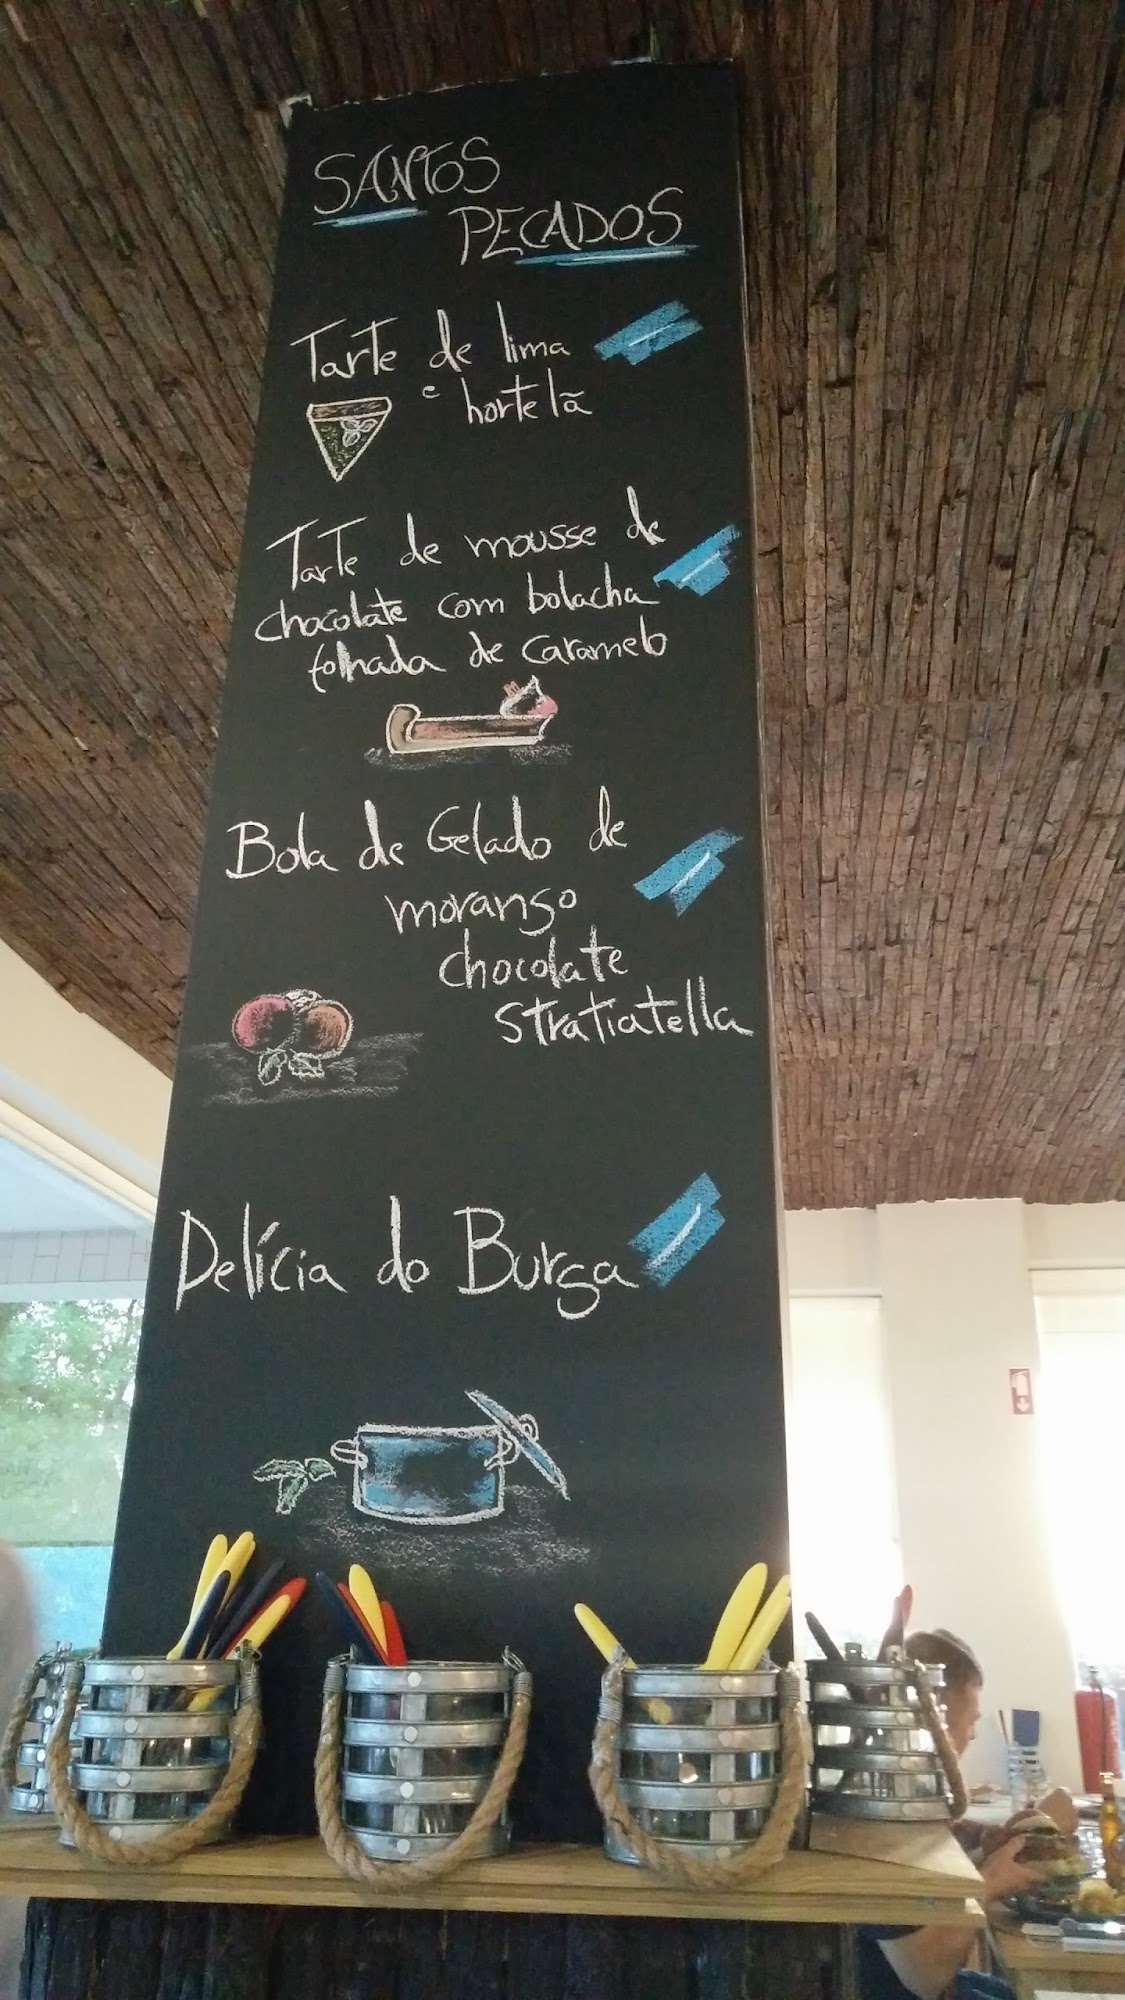 SANTOS
PECADOS
Tarte de lima
e hortelã
Tarte de mousse de
chocolate com bolacha
folhada de caramelo
Bola de Gelado de
morango
chocolate
stratiatella
Delícia do Burga